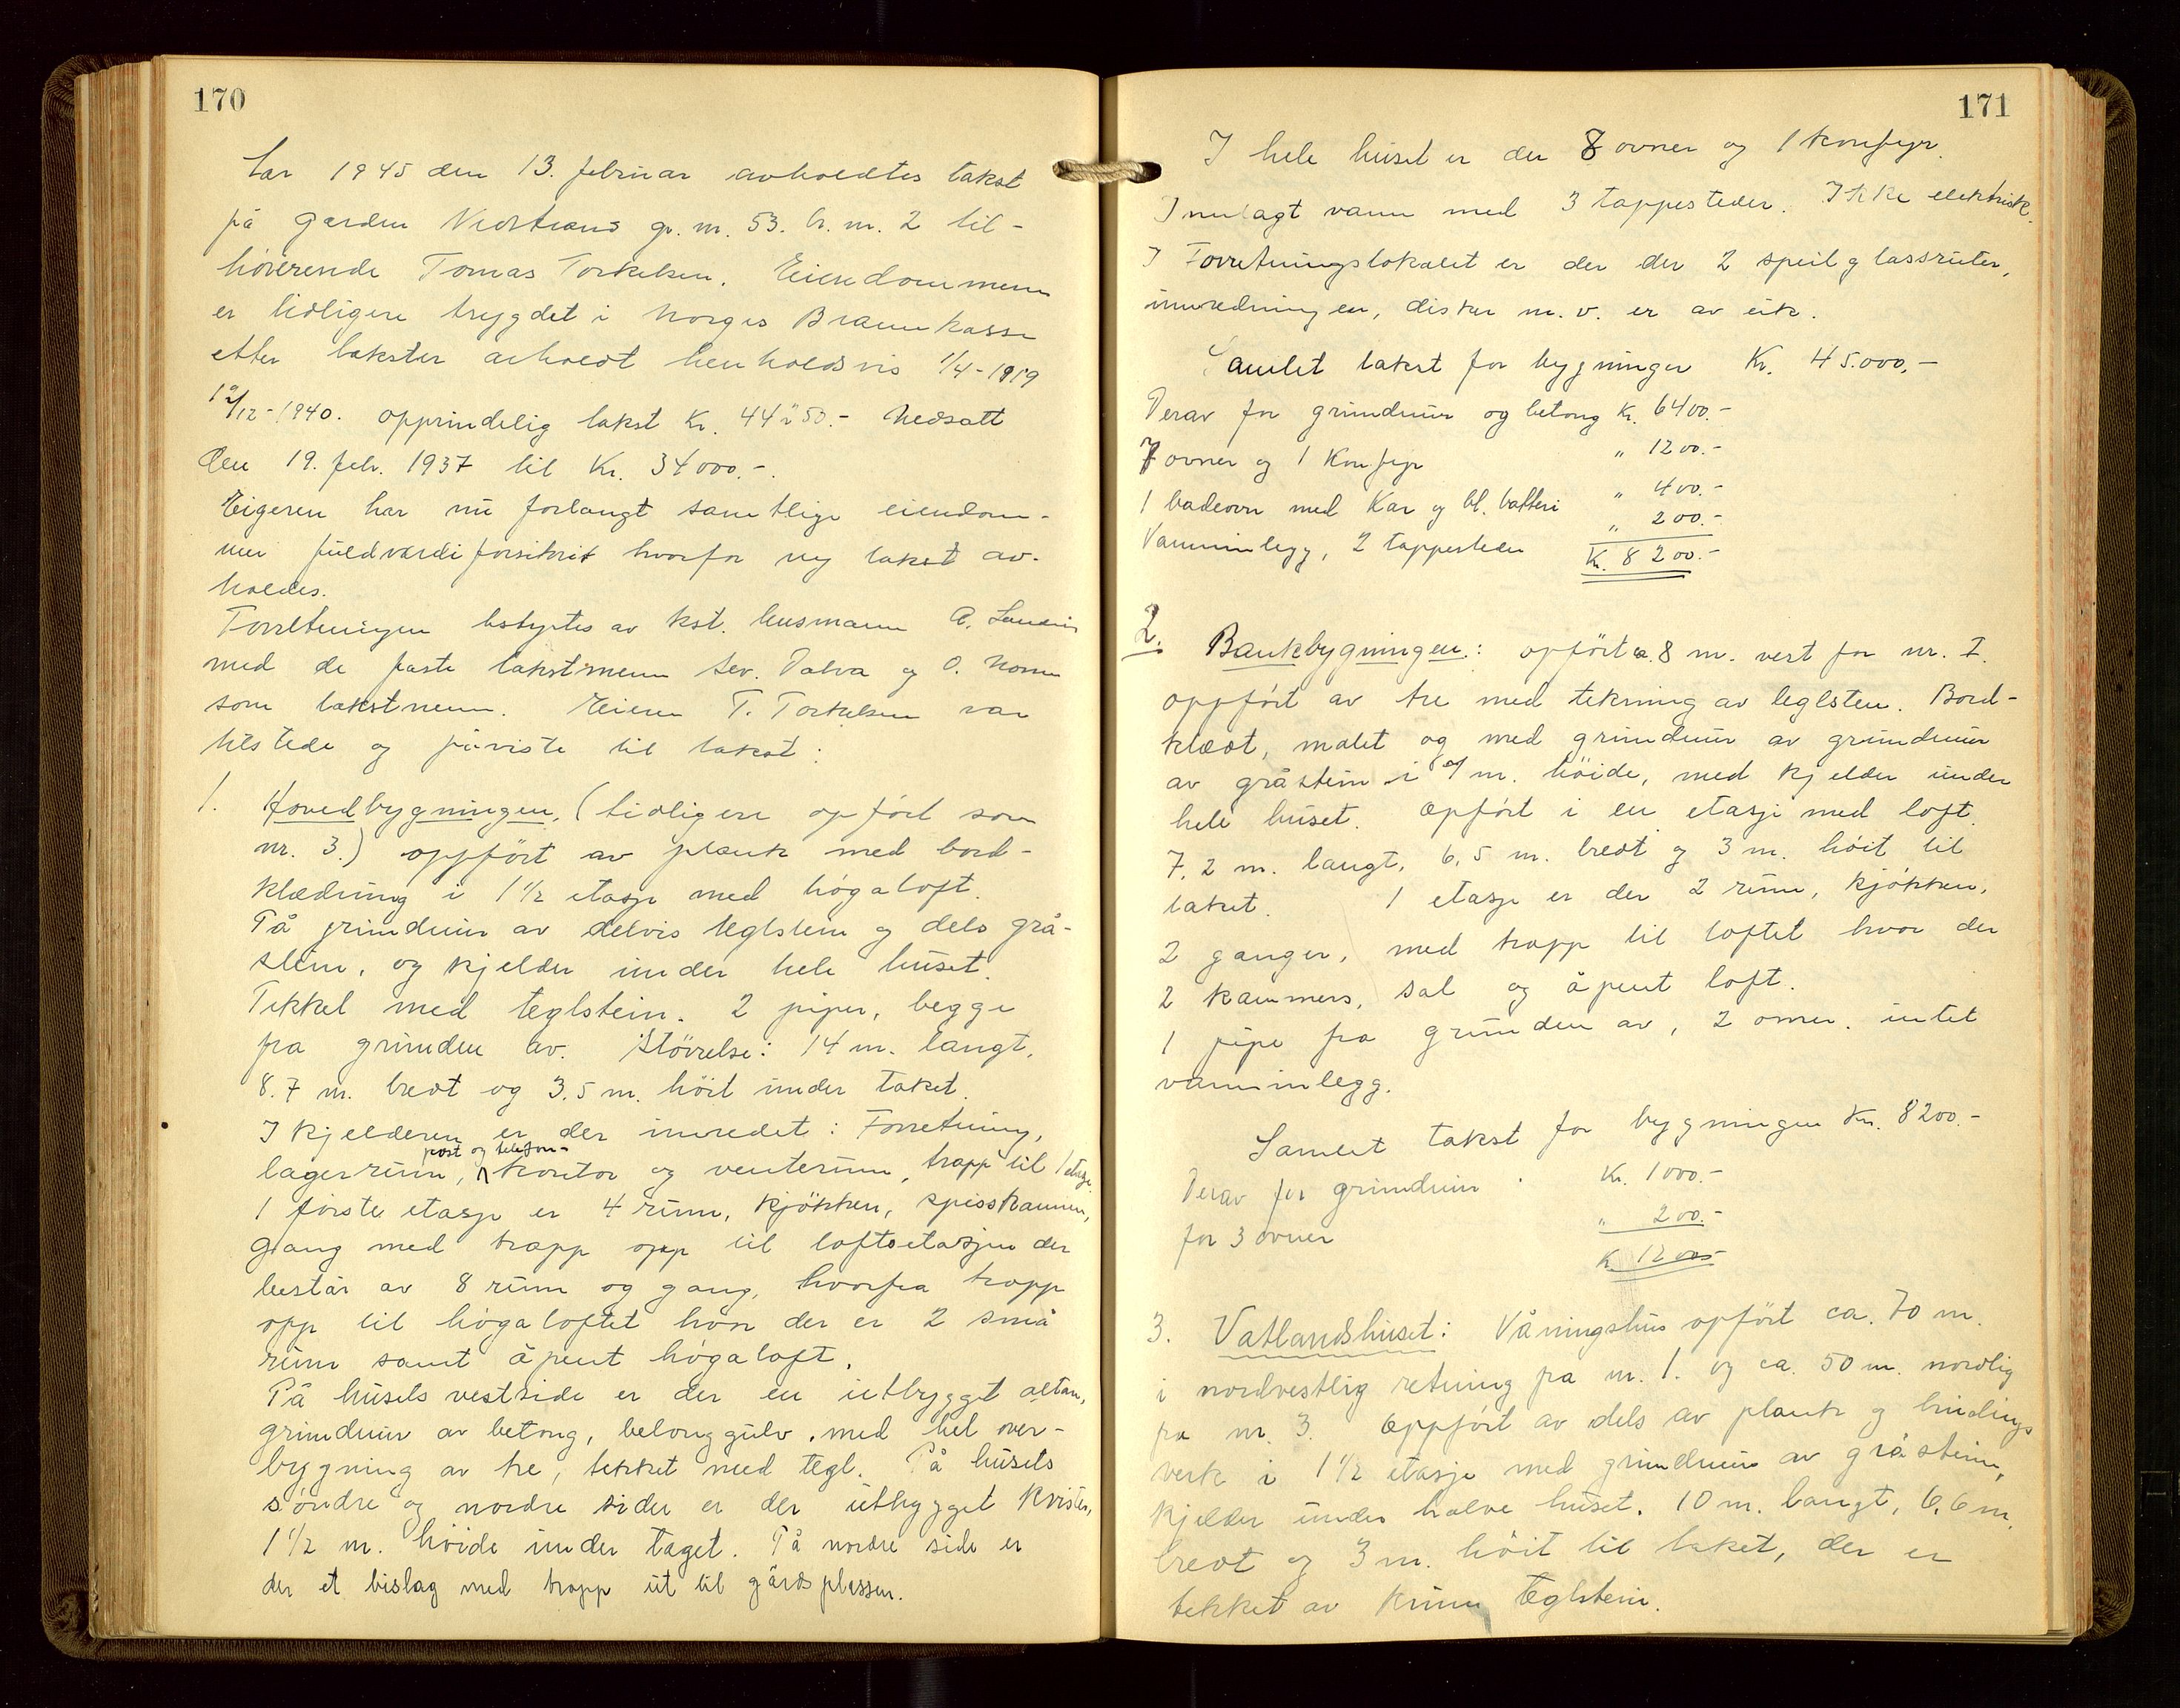 170
År 1945 den 13. februar avholdtes takst
på garden Nedstrand gr. nr. 53. br. nr. 2 til-
hørerende Tomas Torkelsen. Eiendommen
er tidligere trygdet i Norges Brannkasse
etter takster avholdt henholdsvis 1/4-1919
/12-1940. opprindelig takst Kr. Nedsatt
den 19. feb. 1937 til Kr. 34000.-
Eigeren har nu forlangt samtlige eiendom-
mer fuldværdiforsikrit hvorfor ny takst av-
holdes.
Forretningen bestyrtes av kst. lensmann A.
med de faste takstmenn Sev. Dalva og O.
som takstmenn. Eieren T. Torkelsen var
tilstede og påviste til takst:
1. Hovedbygningen, (tidligere opført som
nr. 3.) oppført av plank med bord-
klædning i 1 1/2 etasje med högaloft.
På grindmur av delvis teglstein og dels grå-
stein, og kjelder under hele huset.
Tekket med teglstein. 2 piper, begge
fra grunden av. Störrelse: 14 m. langt,
8.7 m. bredt og 3.5 m. höit under taket.
I kjelderen er der innredet: Forretning,
post og telefon-
lagerrum, kontor og venterum, trapp til 1 etasje.
I förste etasje er 4 rum, kjökken, spisskammer,
gang med trapp opp til loftsetasjen der
består av 8 rum og gang, hvorfra trapp
opp til högaloftet hvor der er 2 små
rum samt åpent högaloft.
På husets vestside er der en utbygget altan,
grundmur av betong, betonggulv, med hel over-
bygning av tre, tekket med tegl. På husets
söndre og nordre sider er der utbygget kvister,
1 1/2 m. höide under taget. På nordre side er
der et bislag med trapp ut til gårdsplassen.
171
I hele huset er der 8 ovner og 1 komfyr.
Innlagt vann med 3 tappesteder. Ikke elektrisk.
I Forretningslokalet er der der 2 speilglassruter,
innredningen, disker m.v. er av eik.
Samlet takst for bygninger Kr. 45.000.-
Derav for grundmur og betong Kr. 6400.-
7 ovner og 1 Komfyr " 1200.-
1 badeovn med Kar og bl. batteri " 400.-
Vanninnlegg, 2 tappesteder " 200.-
Kr. 8200.-
2. Bankbygningen: opført ca. 8 m. vest for nr. I.
oppført av tre med tekning av teglsten. Bord-
klædt, malet og med grundmur av grundmur
av gråstein i m. höide, med kjelder under
hele huset. Opført i en etasje med loft.
7,2 m. langt, 6,5 m. bredt og 3 m. höit til
taket. I etasje er der 2 rum, kjökken,
2 ganger, med trapp til loftet hvor der
2 kammers, sal og åpent loft.
1 pipe fra grunden av, 2 omer. intet
vanninnlegg.
Samlet takst for bygningen Kr. 8200.-
Derav for grundmur Kr. 1000.-
for 3 ovner " 200.-
Kr. 1200.-
3. Vatlandshuset: Våningshus opført ca. 70 m.
i nordvestlig retning fra nr. 1. og ca. 50 m. nordlig
fra nr. 3. Oppført av dels av plank og bindings
verk i 1 1/2 etasje med grundmur av gråstein,
kjelder under halve huset. 10 m. langt, 6,6 m.
bredt og 3 m. höit til taket, der er
tekket av krum teglstein.